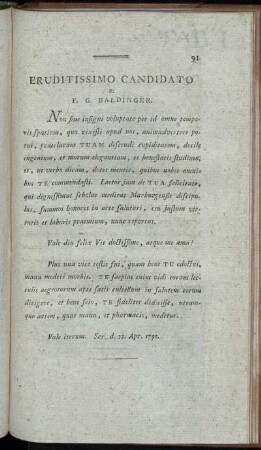 91
ERUDITISSIMO CANDIDATO
E. G. BALDINGER.
Non sine insigni voluptate per id omne tempo-
ris spatium, quo vixisti apud nos, animadvertere po-
tui, praeclaram TUAM discendi cupiditatem, docile
ingenium, et morum elegantiam, et honestatis studium,
et, ut verbo dicam, dotes mentis, quibus nobis omni-
bus TE commendasti. Laetor jam de TUA felicitate,
qui dignissimus scholae medicae Marburgensis discipu-
lus, summos honores in arte salutari, ceu justum vir-
tutis et laboris praemium, nunc reportas.
Vale diu felix Vir doctissime, atque me ama!
Plus una vice testis fui, quam bene TU edoctus,
manu mederi morbis. TE saepius enim vidi coram lec-
tulis aegrotorum opes satis in salutem eorum
dirigere, et bene scio, TE fideliter didicisse, utram-
que artem, quae manu, et pharmacis, medetur.
Vale iterum. Scr. d. 22. Apr. 1791.